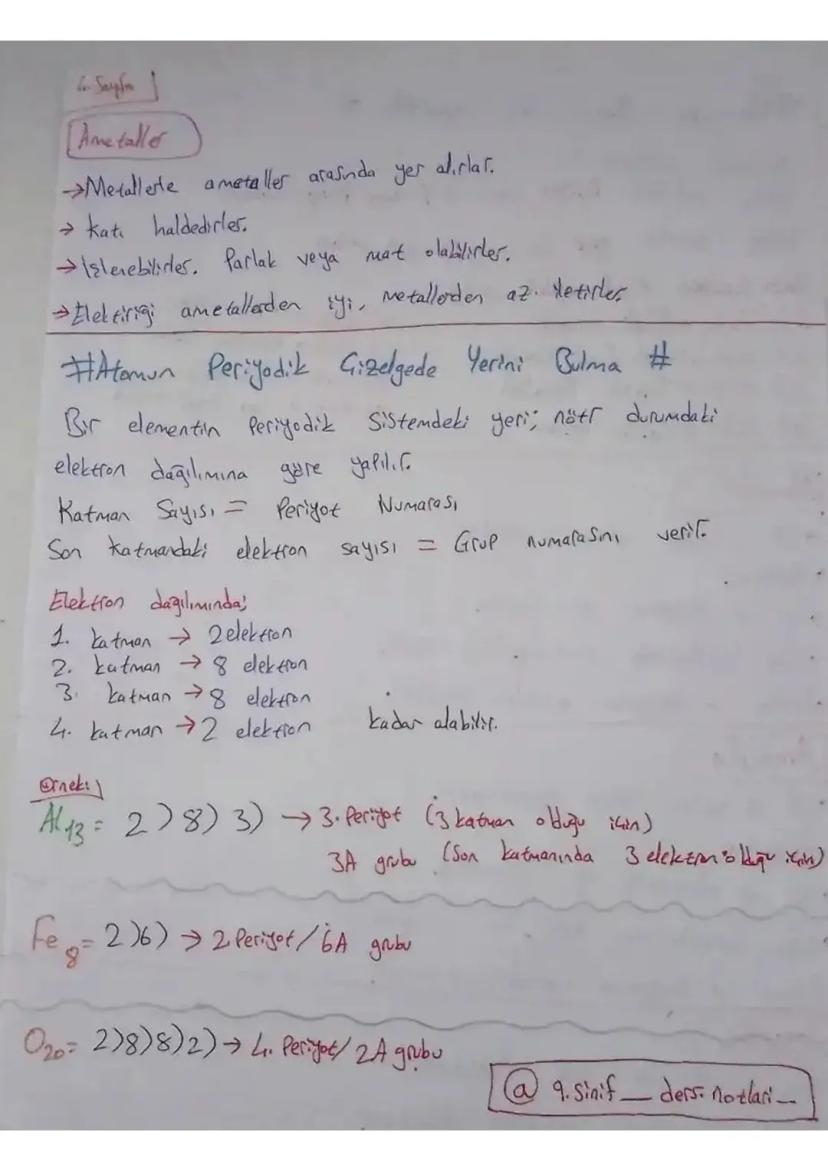 4. Sayfa
Ametaller
→Metallerle ametaller arasında yer alırlar.
→ katı haldedirler.
→İşlenebilirler. Parlak veya mat olabilirler.
→Elektiriği ametallerden iyi, metallerden az iletirler.
#Atomun Periyodik Çizelgede Yerini Bulma #
Bir elementin periyodik sistemdeki yeri; nötr durumdaki
elektron dağılımına göre yapılır.
Katman Sayısı = Periyot Numarası
Son katmandaki elektron sayısı = Grup numarasını verir.
Elektron dağılımında;
1. katman → 2 elektron
2. katman → 8 elektron
3. katman → 8 elektron
4. katman → 2 elektron kadar alabilir.
Örnek:
Al13 = 2 ) 8 ) 3 ) → 3. Periyot (3 katman olduğu için)
3A grubu (Son katmanında 3 elektron olduğu için)
Fe8 = 2 ) 6 ) → 2 Periyot / 6A grubu
O20 = 2 ) 8 ) 8 ) 2 ) → 4. Periyot / 2A grubu
@ 9.sinif__ders.notlari_